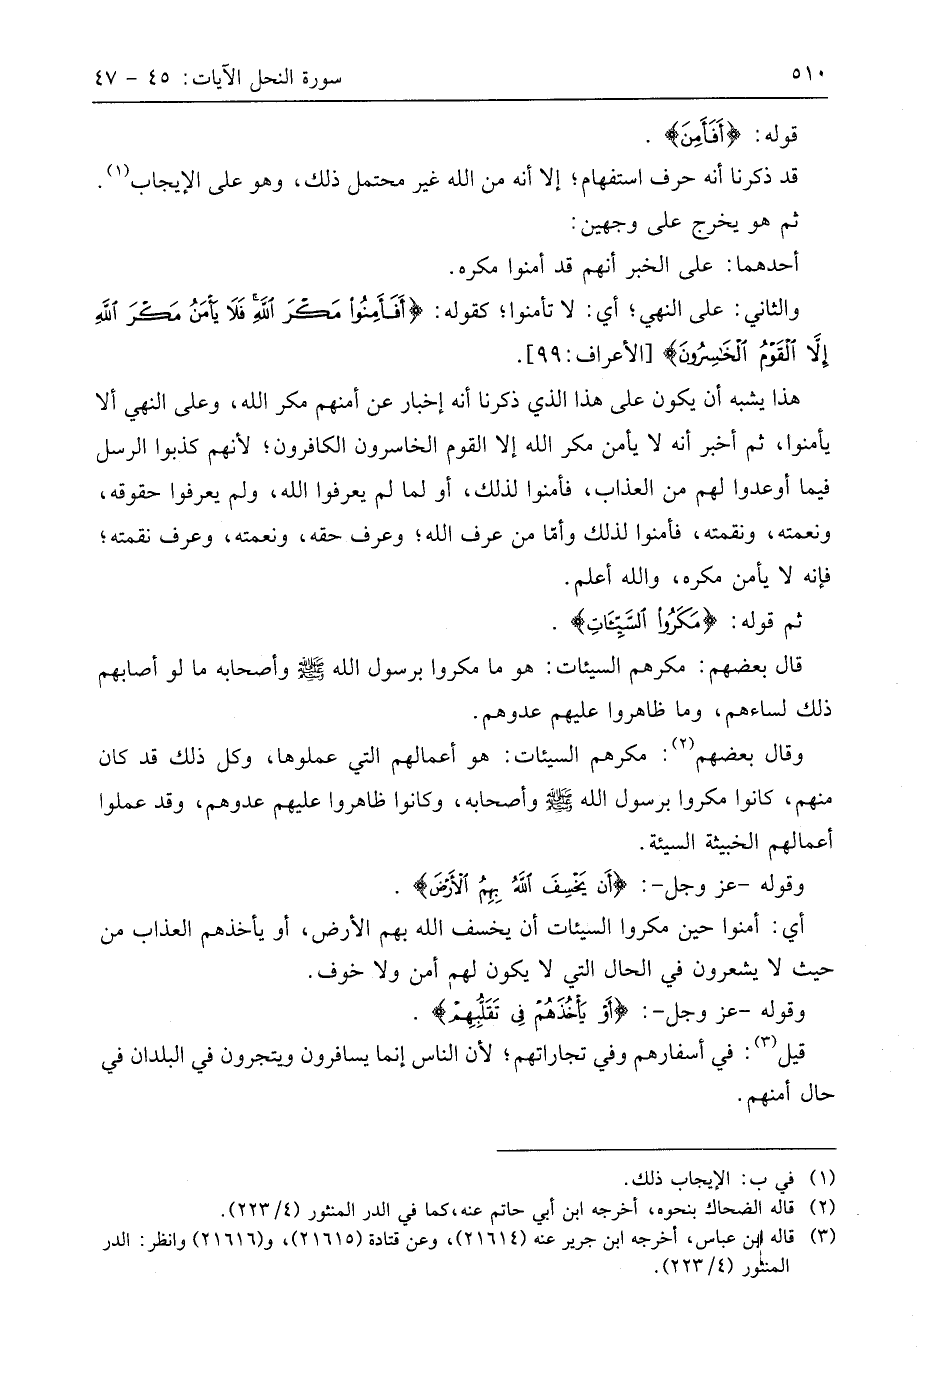 ٥١٠ سورة النحل الآيات: ٤٥ - ٤٧
قوله: ﴿أَفَأَمِنَ﴾ .
قد ذكرنا أنه حرف استفهام؛ إلا أنه من الله غير محتمل ذلك، وهو على الإيجاب(١).
ثم هو يخرج على وجهين:
أحدهما: على الخبر أنهم قد أمنوا مكره.
والثاني: على النهي؛ أي: لا تأمنوا؛ كقوله: ﴿أَفَأَمِنُوا۟ مَكْرَ ٱللَّهِۚ فَلَا يَأْمَنُ مَكْرَ ٱللَّهِ
إِلَّا ٱلْقَوْمُ ٱلْخَٰسِرُونَ﴾ [الأعراف: ٩٩].
هذا يشبه أن يكون على هذا الذي ذكرنا أنه إخبار عن أمنهم مكر الله، وعلى النهي ألا
يأمنوا، ثم أخبر أنه لا يأمن مكر الله إلا القوم الخاسرون الكافرون؛ لأنهم كذبوا الرسل
فيما أوعدوا لهم من العذاب، فأمنوا لذلك، أو لما لم يعرفوا الله، ولم يعرفوا حقوقه،
ونعمته، ونقمته، فأمنوا لذلك وأمّا من عرف الله؛ وعرف حقه، ونعمته، وعرف نقمته؛
فإنه لا يأمن مكره، والله أعلم.
ثم قوله: ﴿مَكَرُوا۟ ٱلسَّيِّـَٔاتِ﴾ .
قال بعضهم: مكرهم السيئات: هو ما مكروا برسول الله ﷺ وأصحابه ما لو أصابهم
ذلك لساءهم، وما ظاهروا عليهم عدوهم.
وقال بعضهم(٢): مكرهم السيئات: هو أعمالهم التي عملوها، وكل ذلك قد كان
منهم، كانوا مكروا برسول الله ﷺ وأصحابه، وكانوا ظاهروا عليهم عدوهم، وقد عملوا
أعمالهم الخبيثة السيئة.
وقوله -عز وجل-: ﴿أَن يَخْسِفَ ٱللَّهُ بِهِمُ ٱلْأَرْضَ﴾ .
أي: أمنوا حين مكروا السيئات أن يخسف الله بهم الأرض، أو يأخذهم العذاب من
حيث لا يشعرون في الحال التي لا يكون لهم أمن ولا خوف.
وقوله -عز وجل-: ﴿أَوْ يَأْخُذَهُمْ فِى تَقَلُّبِهِمْ﴾ .
قيل(٣): في أسفارهم وفي تجاراتهم؛ لأن الناس إنما يسافرون ويتجرون في البلدان في
حال أمنهم.
(١) في ب: الإيجاب ذلك.
(٢) قاله الضحاك بنحوه، أخرجه ابن أبي حاتم عنه،كما في الدر المنثور (٤/ ٢٢٣).
(٣) قاله ابن عباس، أخرجه ابن جرير عنه (٢١٦١٤)، وعن قتادة (٢١٦١٥)، و(٢١٦١٦) وانظر: الدر
المنثور (٤/ ٢٢٣).